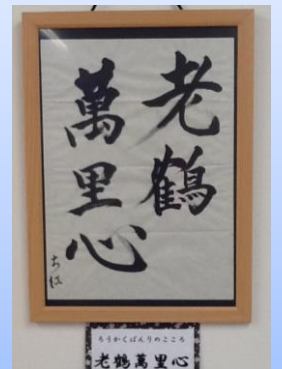 老鶴
萬里心
ろうかくばんりのこころ
老鶴萬里心